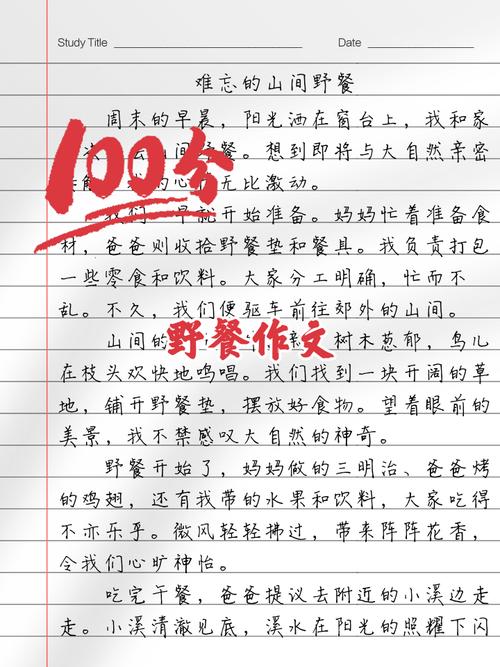 Study Title
Date
难忘的山间野餐
周末的早晨，阳光洒在窗台上，我和家
山间野餐。想到即将与大自然亲密
的心 无比激动。
100分
我们 早就开始准备。妈妈忙着准备食
材，爸爸则收拾野餐垫和餐具。我负责打包
一些零食和饮料。大家分工明确，忙而不
乱。不久，我们便驱车前往郊外的山间。
山间的 树木葱郁，鸟儿
野餐作文
在枝头欢快地鸣唱。我们找到一块开阔的草
地，铺开野餐垫，摆放好食物。望着眼前的
美景，我不禁感叹大自然的神奇。
野餐开始了，妈妈做的三明治、爸爸烤
的鸡翅，还有我带的水果和饮料，大家吃得
不亦乐乎。微风轻轻拂过，带来阵阵花香，
令我们心旷神怡。
吃完午餐，爸爸提议去附近的小溪边走
走。小溪清澈见底，溪水在阳光的照耀下闪